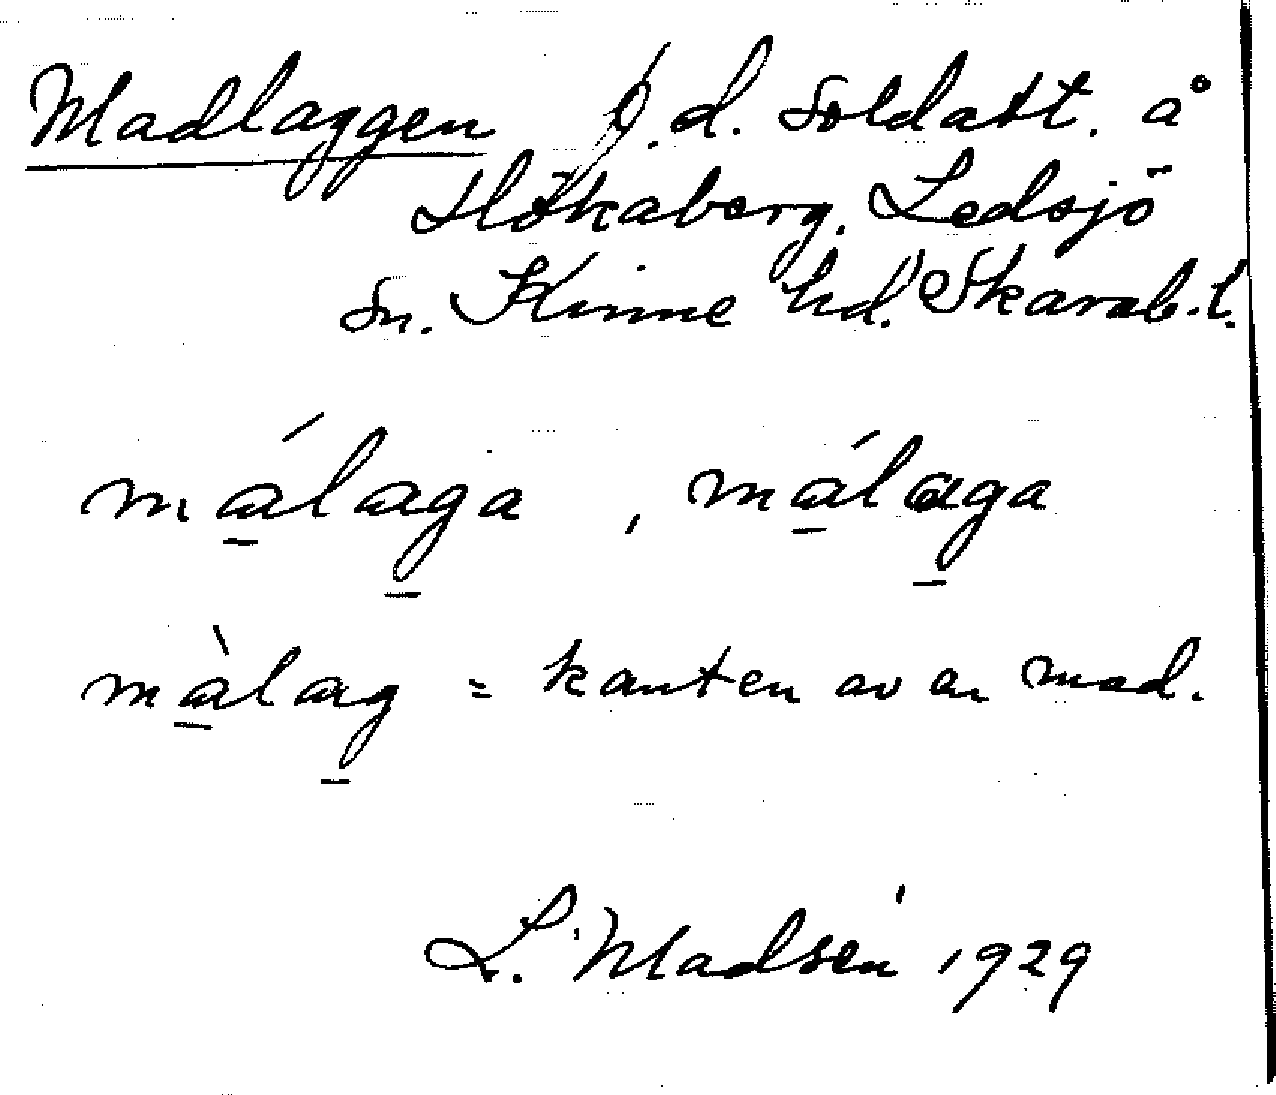 Madlaggen f.d. soldatt. å
Hökaberg, Ledsjö
sn. Kinne hd. Skarab. l.
málaga, málaga
màlag = kanten av en mad.
L. Madsén 1929